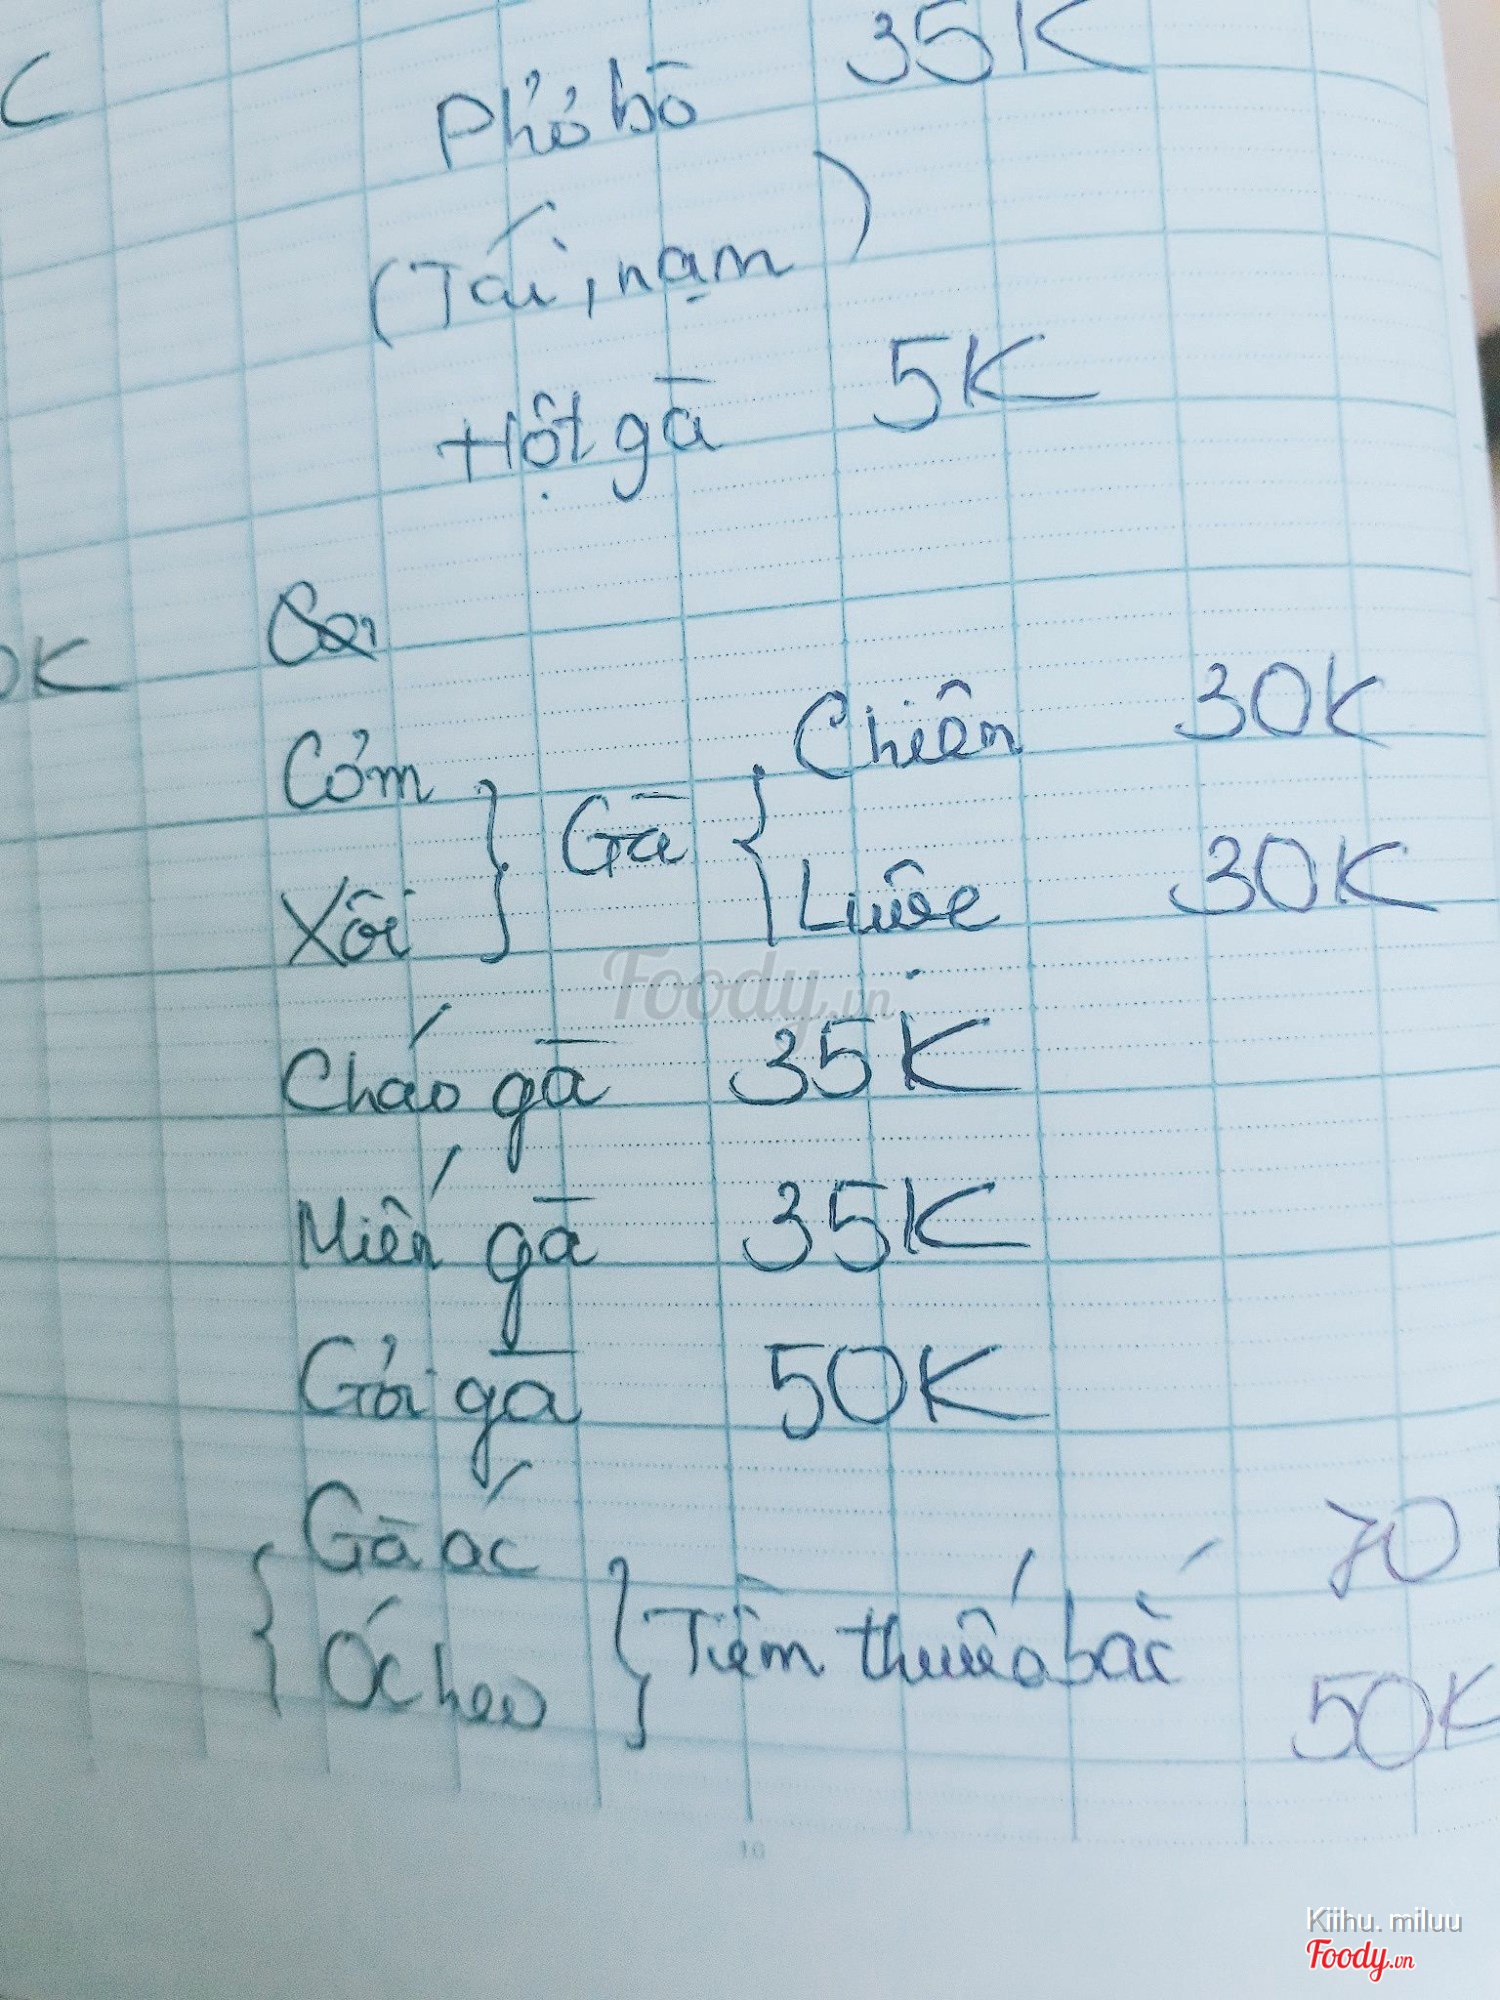 Phở bò 35K
(Tái, nạm)
Hột gà 5K
Cơm Xôi } Gà { Chiên 30K
Luộc 30K
Cháo gà 35K
Miến gà 35K
Gỏi gà 50K
{ Gà ác 70
Óc heo } Tiềm thuốc bắc 50K
0K
10
Foody.vn
Kiihu. miluu
Foody.vn